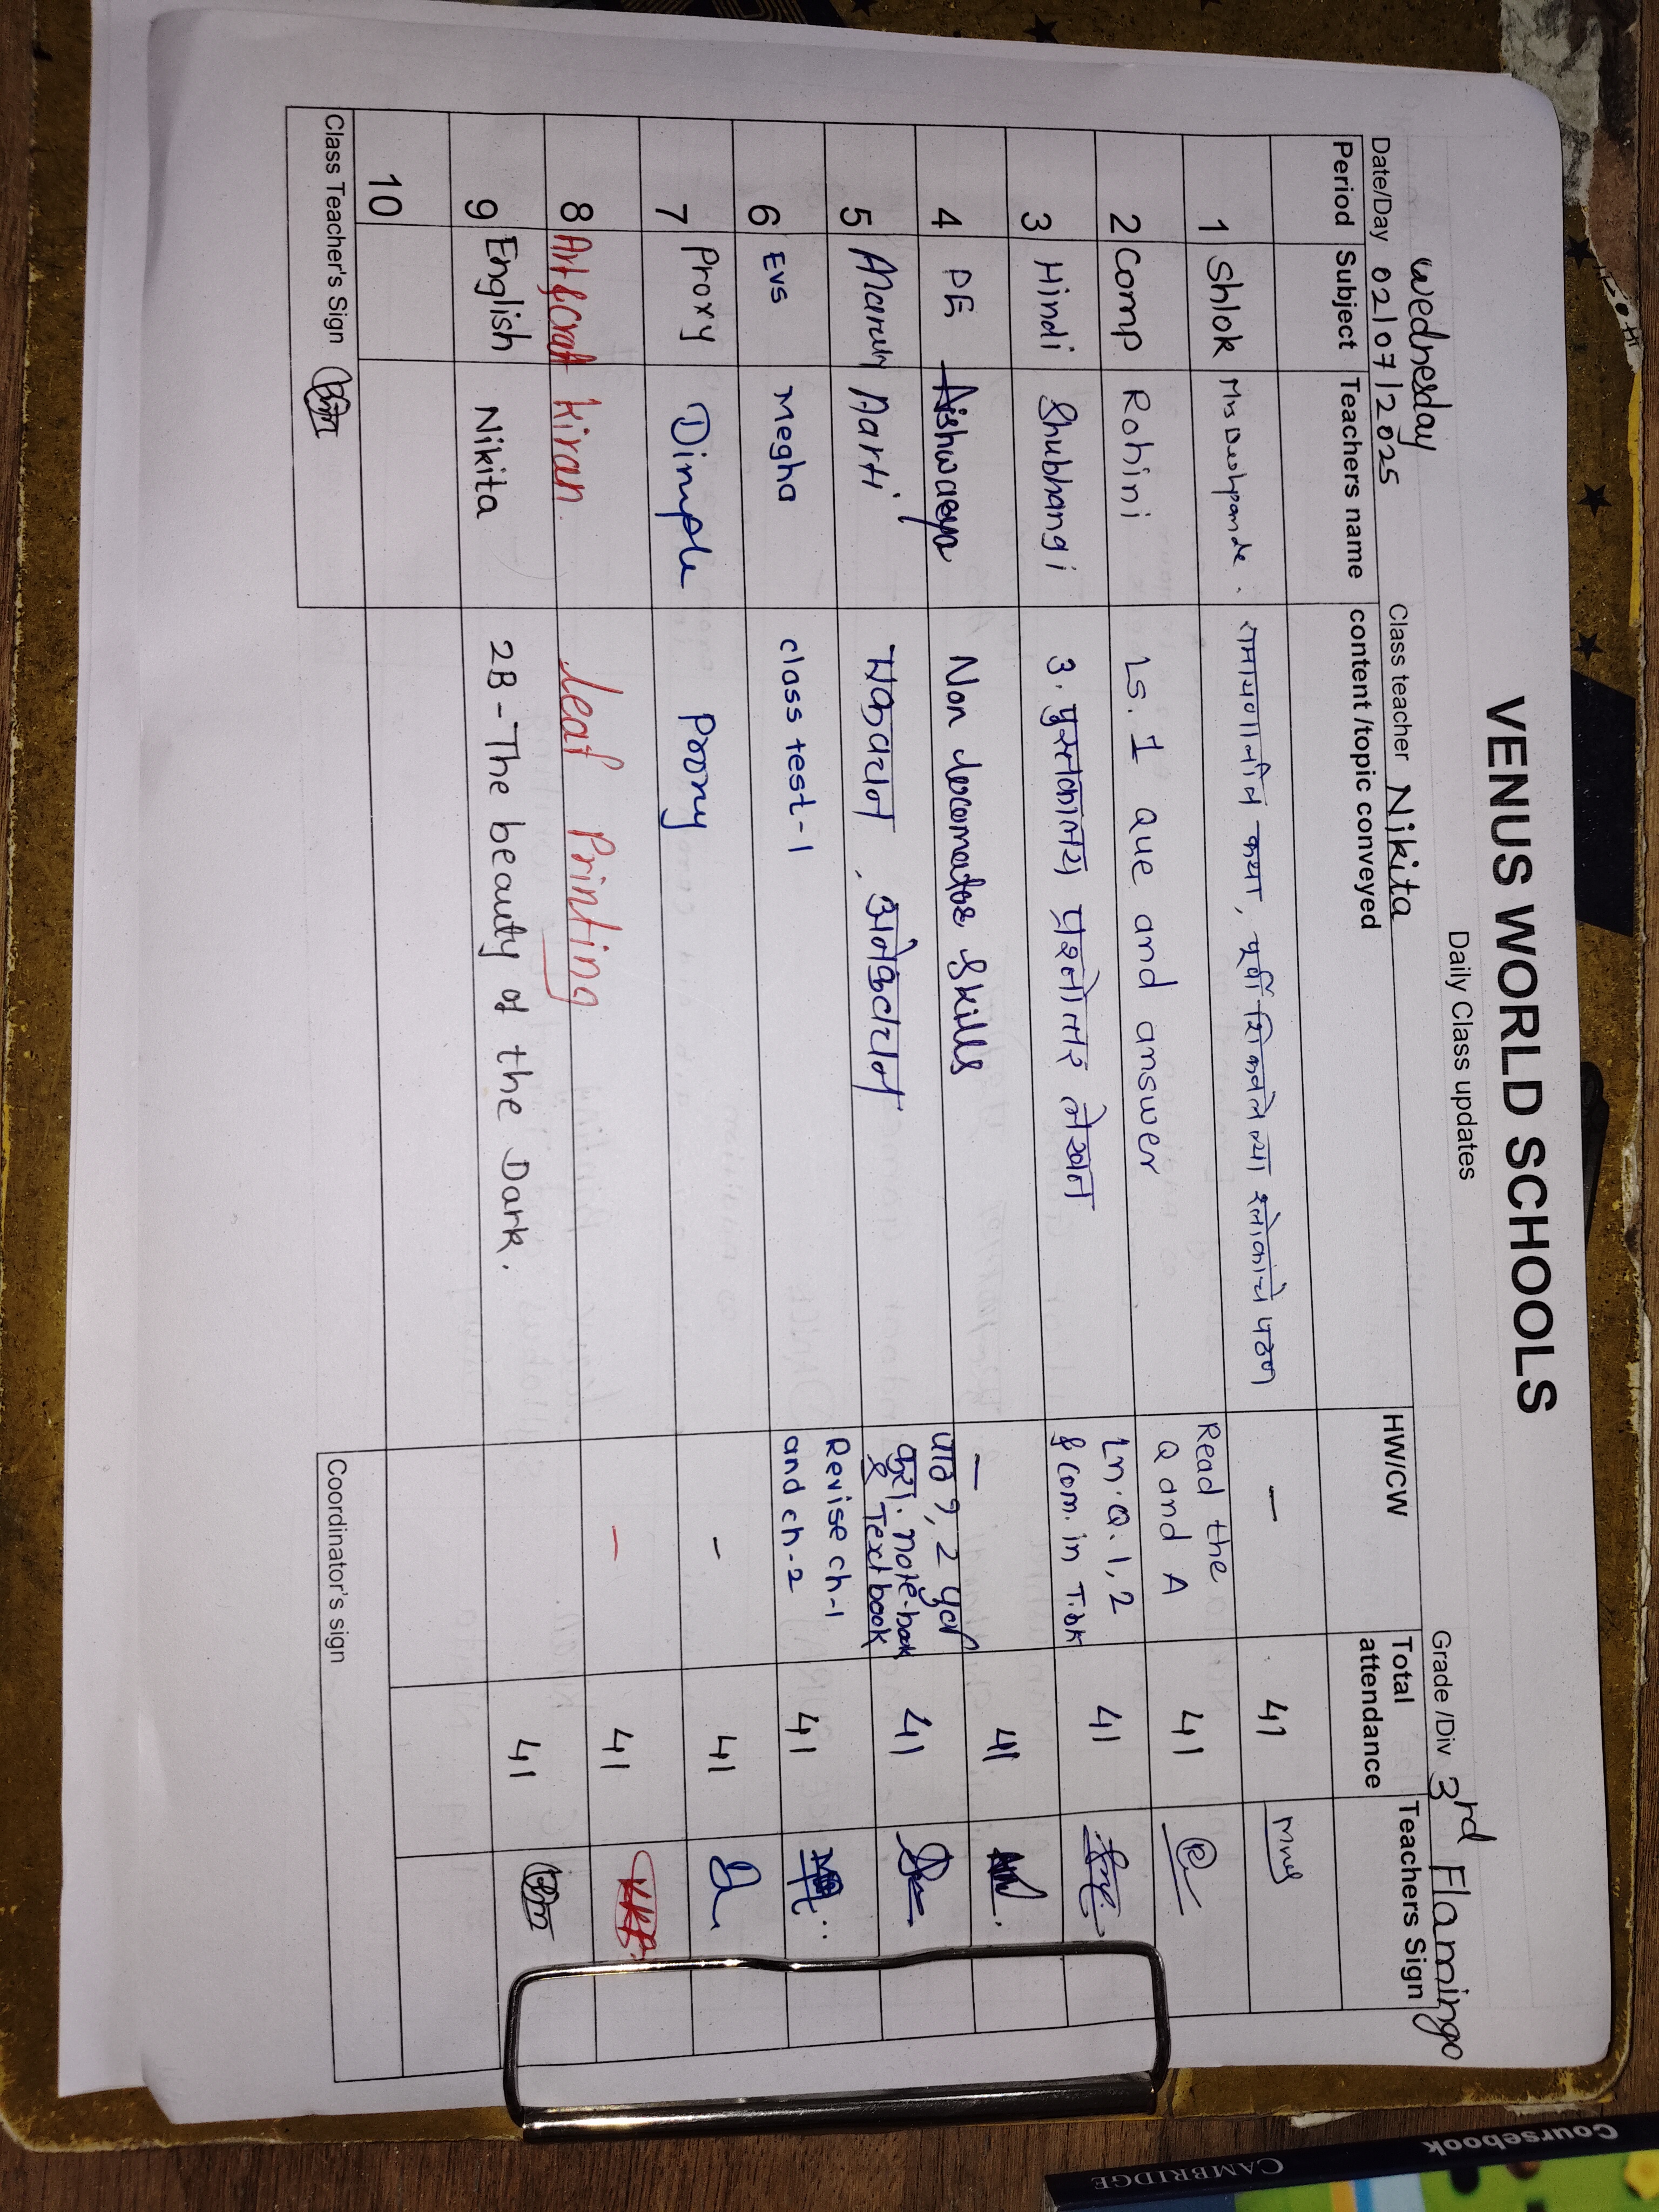 VENUS WORLD SCHOOLS
Daily Class updates
Wednesday
Date/Day 02/07/2025 Class teacher Nikita Grade /Div 3rd Flamingo
Period Subject Teachers name content /topic conveyed HW/CW Total attendance Teachers Sign
1 Shlok Mrs Deshpande. कथा, पूर्वी शिकवलेल्या श्लोकांचे पठण - 41
2 Comp Rohini Ls. 1 que and answer Read the Q and A 41
3 Hindi Shubhangi 3. पुस्तकालय प्रश्नोत्तर लेखन Ln. Q. 1, 2 & com. in T.bk 41
4 PE Aishwarya Non locomotor skills - 41
5 Aarti एकवचन, अनेकवचन पाठ १, 2 पूर्ण करा. note-book & Textbook 41
6 EVS Megha class test-1 Revise ch-1 and ch-2 41
7 Proxy Dimple Proxy - 41
8 Art & craft Kiran. Leaf Printing - 41
9 English Nikita 2B - The beauty of the Dark. 41
10
Class Teacher's Sign Coordinator's sign
CAMBRIDGE
Coursebook